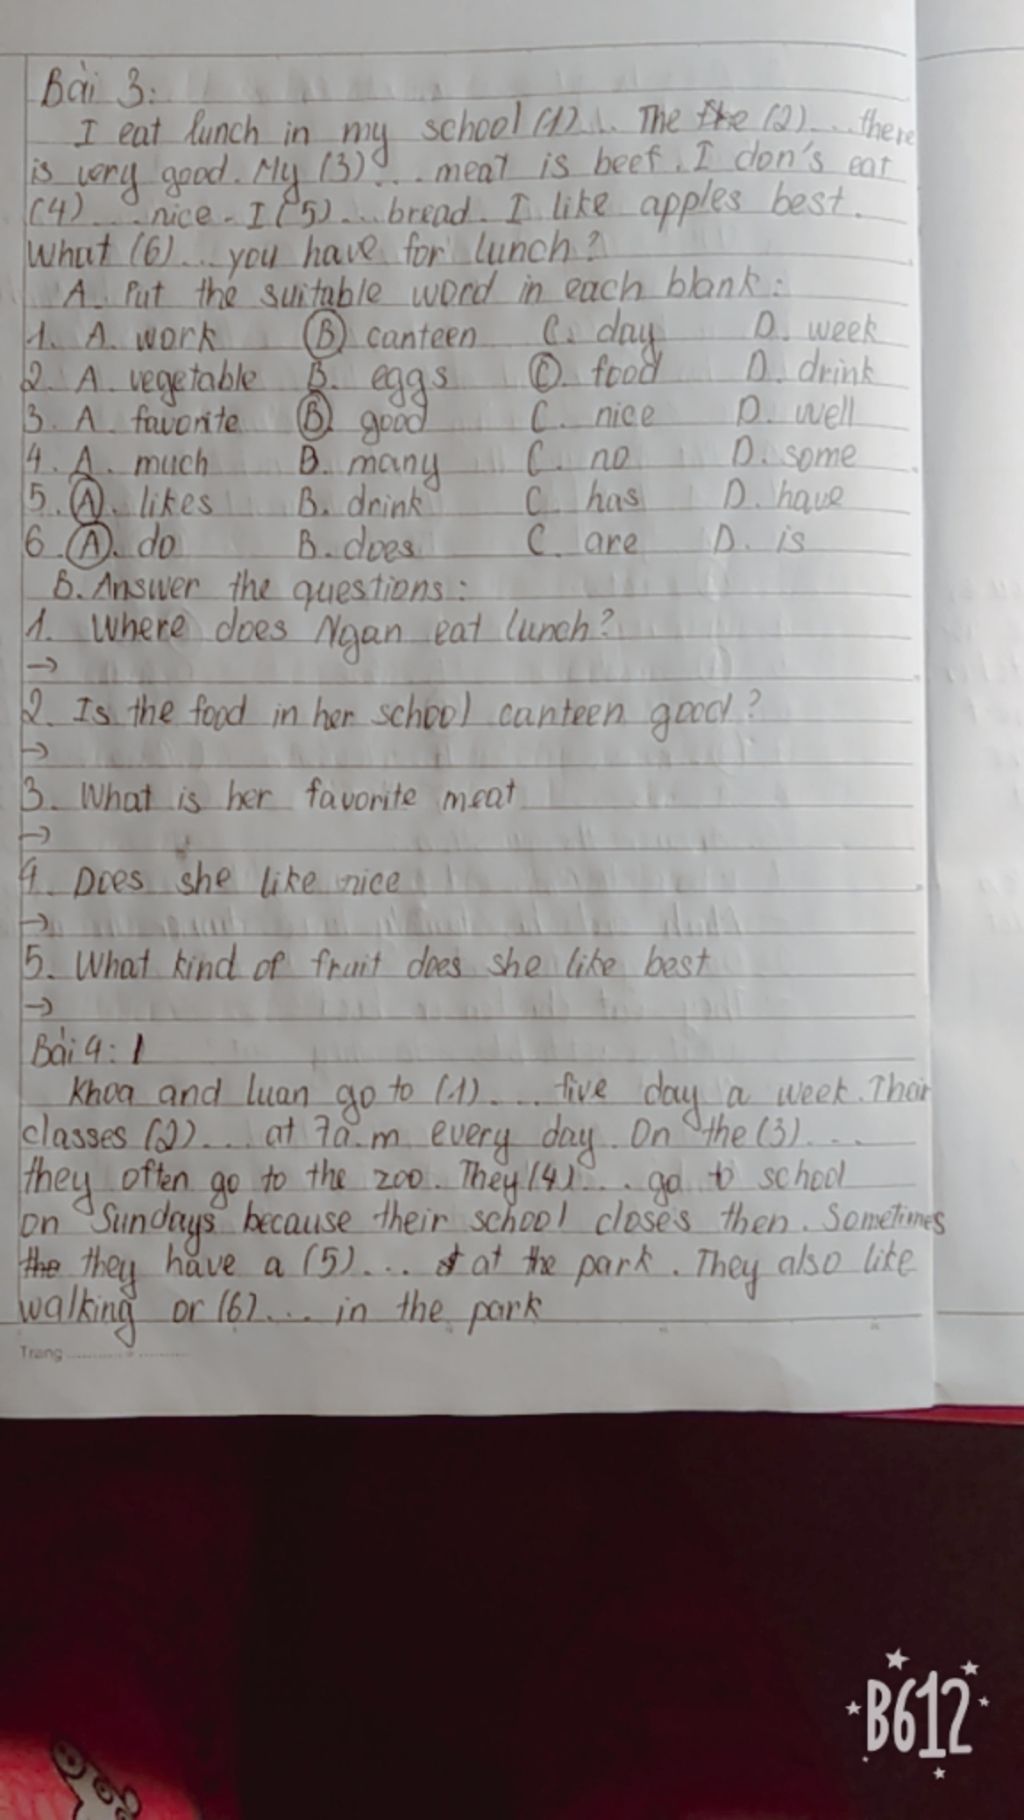 Bài 3:
I eat lunch in my school (1)... The the (2)... there
is very good. My (3)... meat is beef. I don's eat
(4)... nice. I (5)... bread. I like apples best.
What (6)... you have for lunch?
A. Put the suitable word in each blank:
1. A. work B. canteen C. day D. week
2. A. vegetable B. eggs C. food D. drink
3. A. favorite B. good C. nice D. well
4. A. much B. many C. no D. some
5. A. likes B. drink C. has D. have
6 A. do B. does C. are D. is
B. Answer the questions:
1. Where does Ngan eat lunch?
→
2. Is the food in her school canteen good?
→
3. What is her favorite meat
→
4. Does she like nice
→
5. What kind of fruit does she like best
→
Bài 4: 1
Khoa and Luan go to (1)... five day a week. Their
classes (2)... at 7a.m every day. On the (3)...
they often go to the zoo. They (4)... go to school
on Sundays because their school closes then. Sometimes
the they have a (5)... at the park. They also like
walking or (6)... in the park
Trang
B612